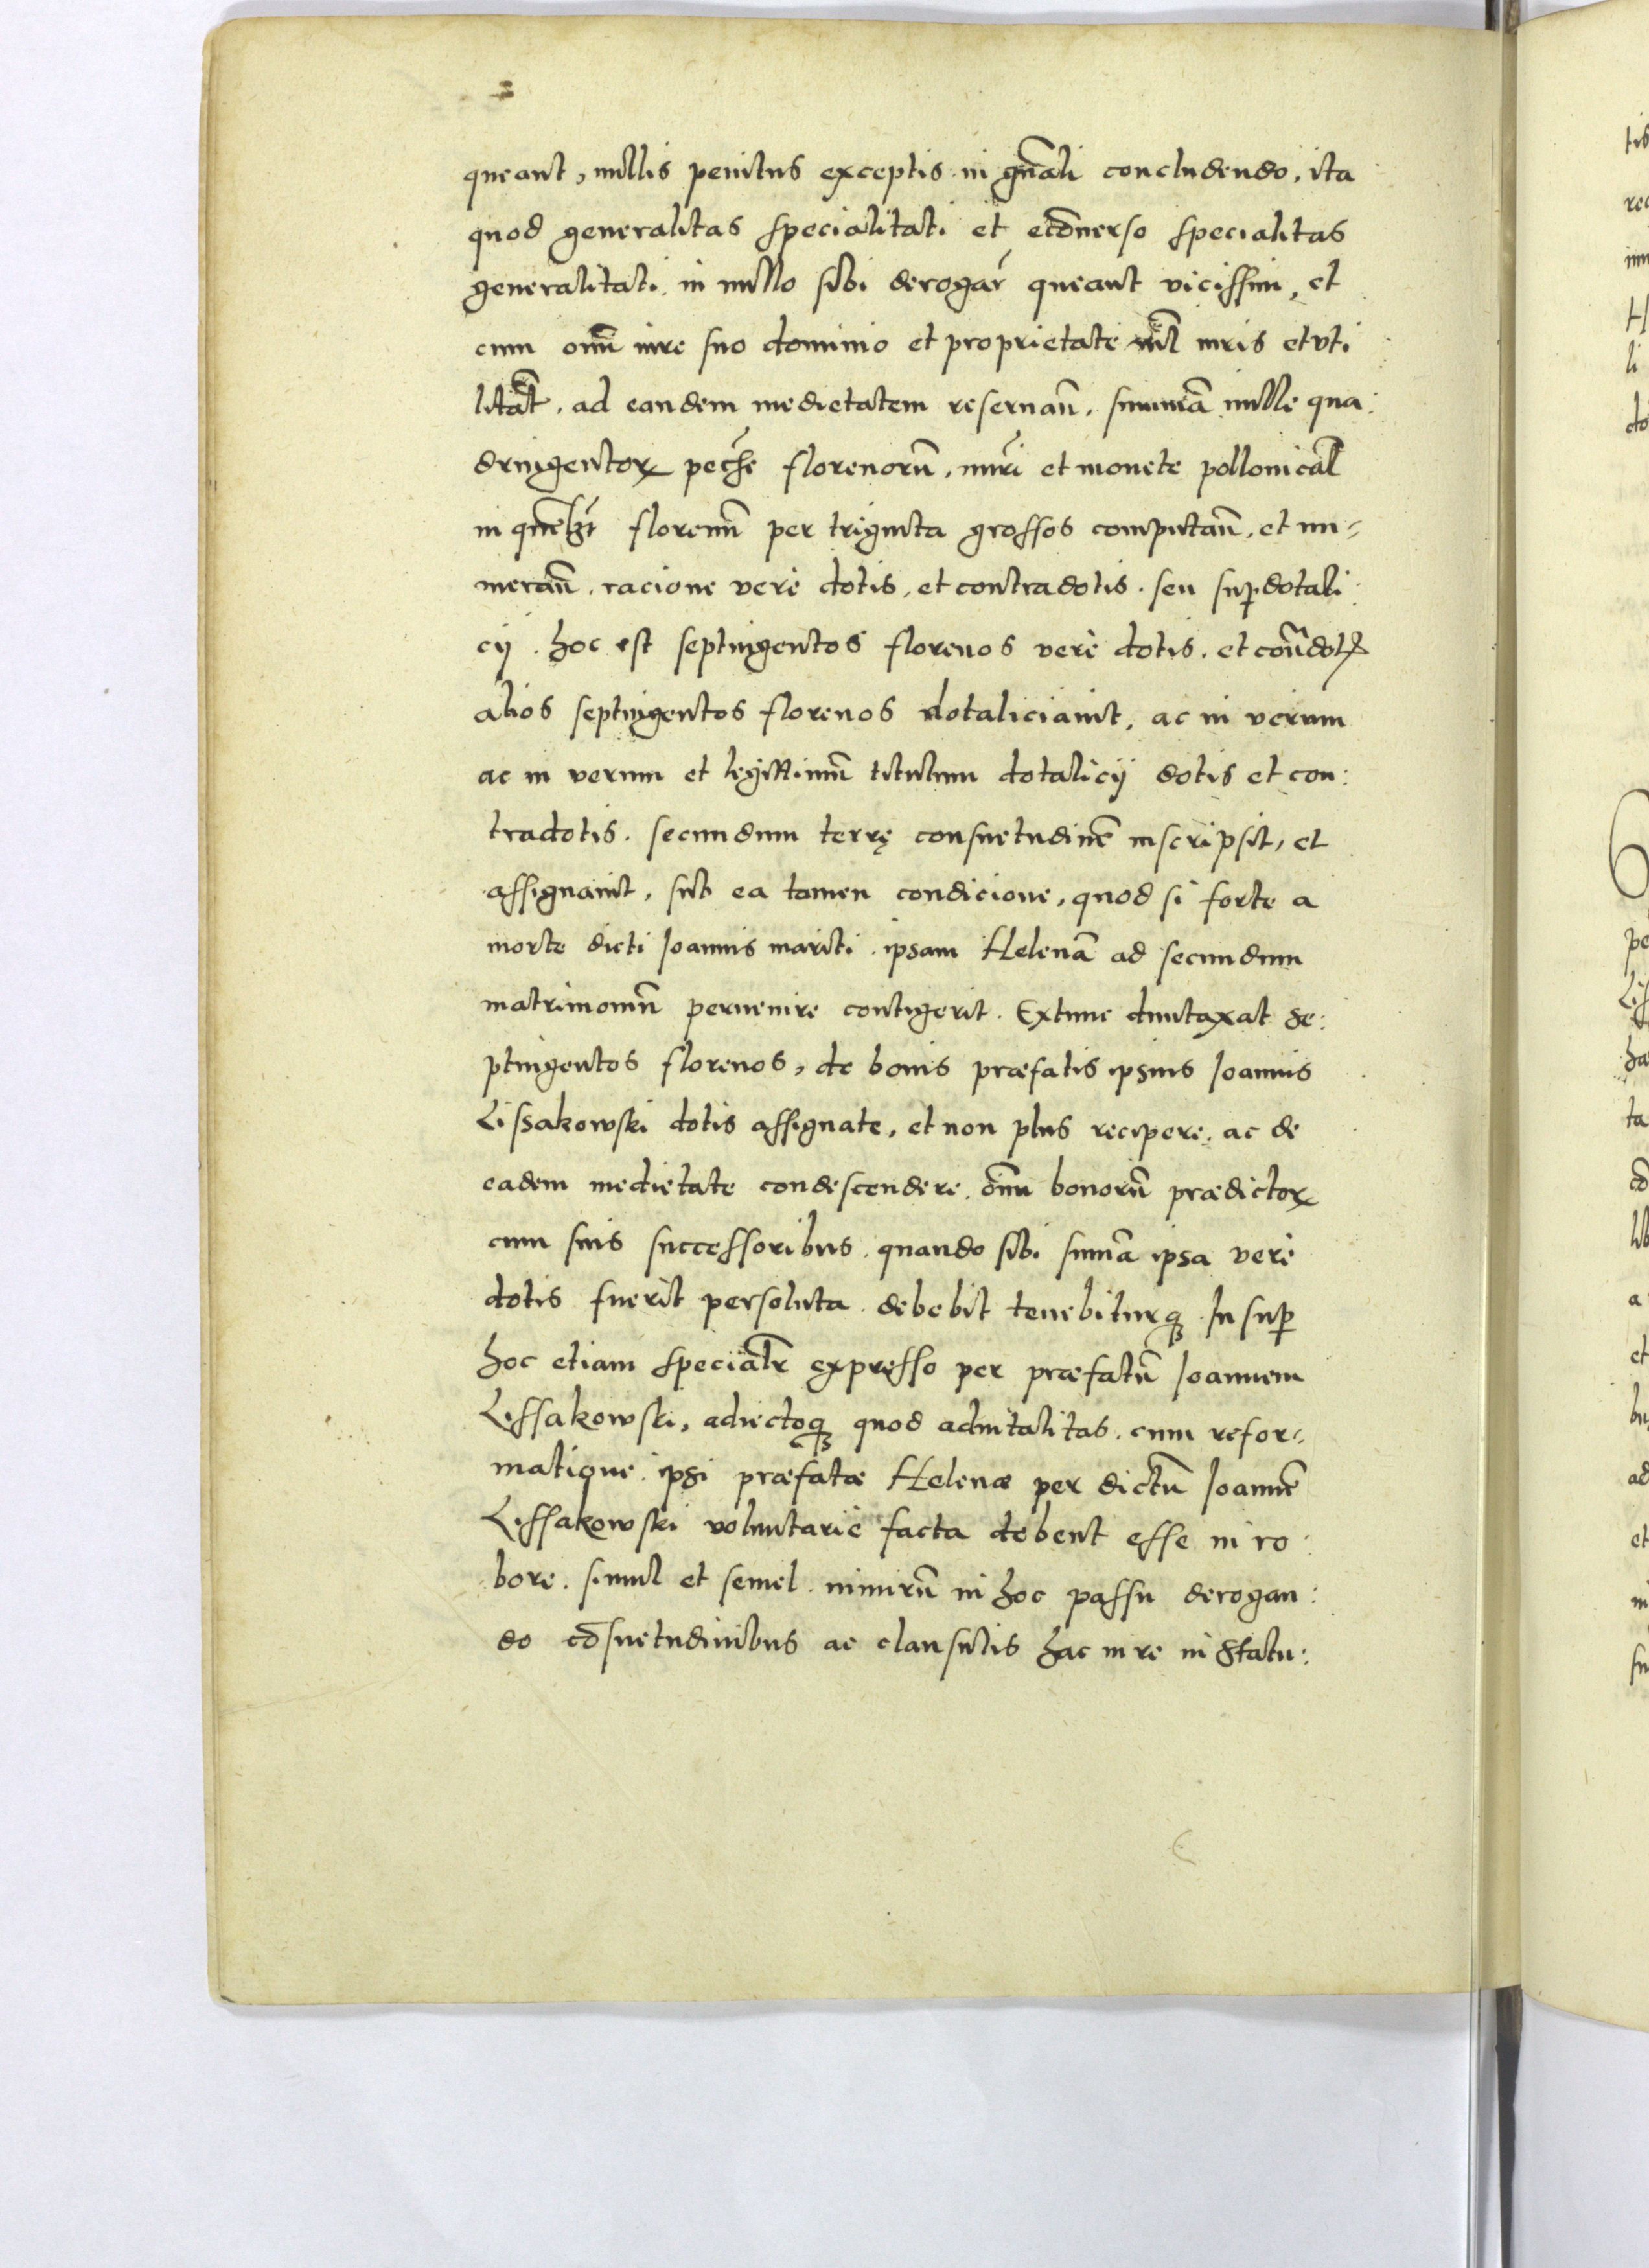 queant, nullis penitus exceptis in gn̄ali concludendo, ita
quod generalitas specialitati et ecōuerso specialitas
generalitati in nullo sibi derogar̄ queant vicissim, et
cum om̄i iure suo dominio et proprietate nil̄ iuris et vti
litat̄, ad eandem medietatem reseruan̄, summā mille qua:
dringentoꝝ pec̄he florenorū, nuri̅ et monete pollonical̄
in quēlꝫt florenū per triginta grossos computan̄, et nu-
meran̄, racione vere dotis, et contradotis seu suꝑdotali
cij hoc est septingentos florenos vere dotis, et con̄dotꝭ
alios septingentos florenos dotaliciauit, ac in verum
ac in verum et legittimū titulum dotalicij dotis et con:
tradotis, secundum terrę consuetudinē inscripsit, et
assignauit, sub ea tamen condicione, quod si forte a
morte dicti Joannis mariti ipsam Helenā ad secundum
matrimoniū peruenire contigerit. Extunc duntaxat se:
ptingentos florenos, de bonis præfatis ipsius Joannis
Lissakowski dotis assignate, et non plus recipere, ac de
eadem medietate condescendere, oīm bonorū prædictoꝝ
cum suis successoribus quando sibi sumā ipsa vere
dotis fuerit persoluta debebit tenebiturqꝫ Insuꝑ
hoc etiam specialr̄ expresso per præfatū Joannem
Lissakowski, adiectoqꝫ quod aduitalitas cum refor-
matione ipsi præfatæ Helenæ per dictū Joannē
Lissakowski voluntarie facta debent esse in ro:
bore simul et semel nimirū in hoc passu derogan:
do cōsuetudinibus ac clausulis hac in re in statu: